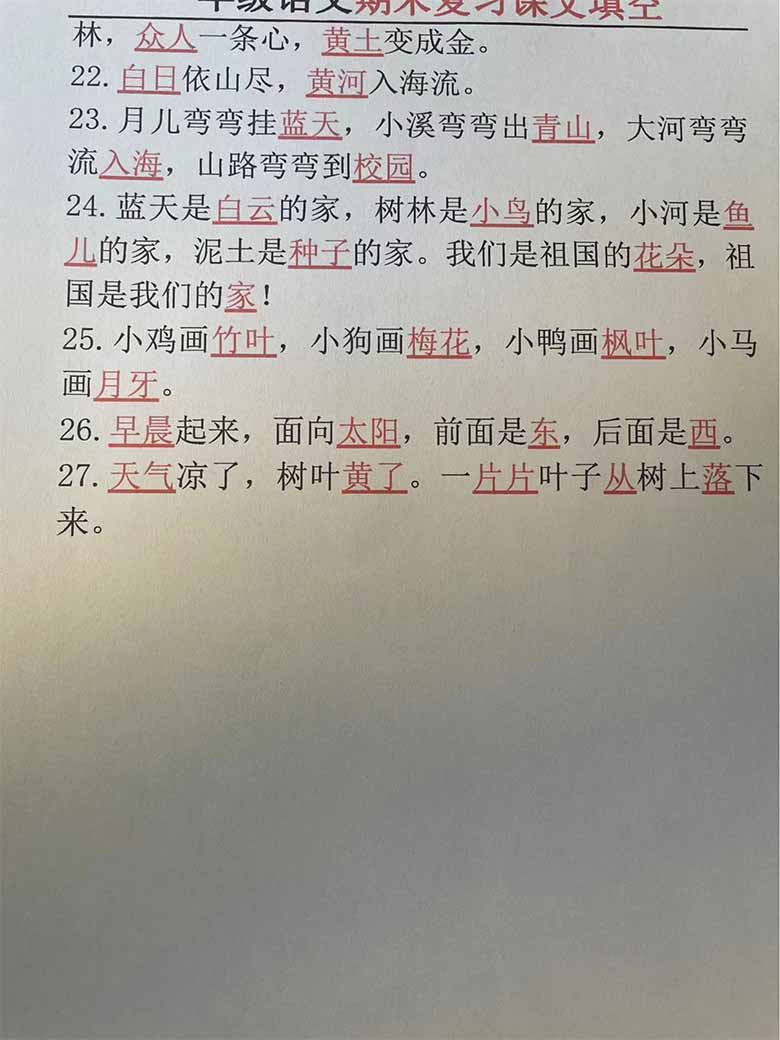 年级语文期末复习课文填空
林，众人一条心，黄土变成金。
22. 白日依山尽，黄河入海流。
23. 月儿弯弯挂蓝天，小溪弯弯出青山，大河弯弯
流入海，山路弯弯到校园。
24. 蓝天是白云的家，树林是小鸟的家，小河是鱼
儿的家，泥土是种子的家。我们是祖国的花朵，祖
国是我们的家！
25. 小鸡画竹叶，小狗画梅花，小鸭画枫叶，小马
画月牙。
26. 早晨起来，面向太阳，前面是东，后面是西。
27. 天气凉了，树叶黄了。一片片叶子从树上落下
来。